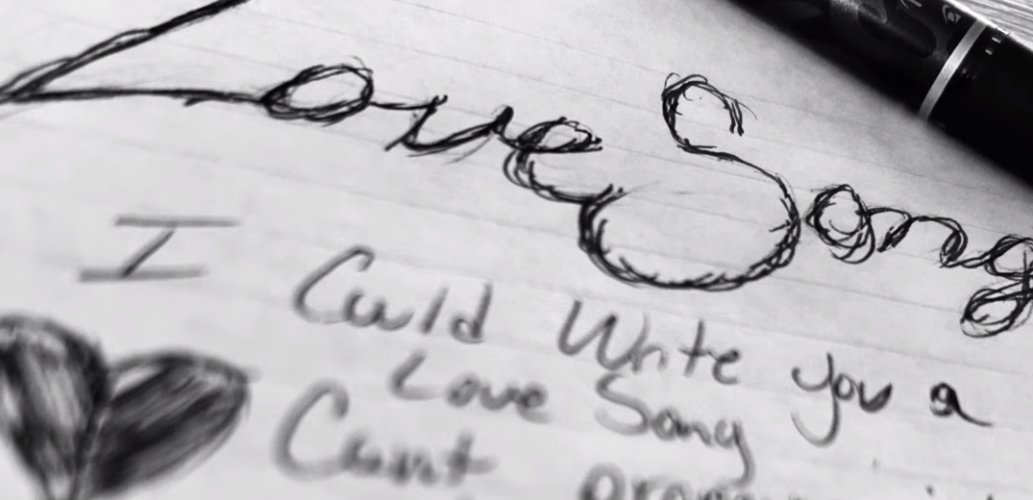 Love Song
I Could Write you a
Love Song
Cant